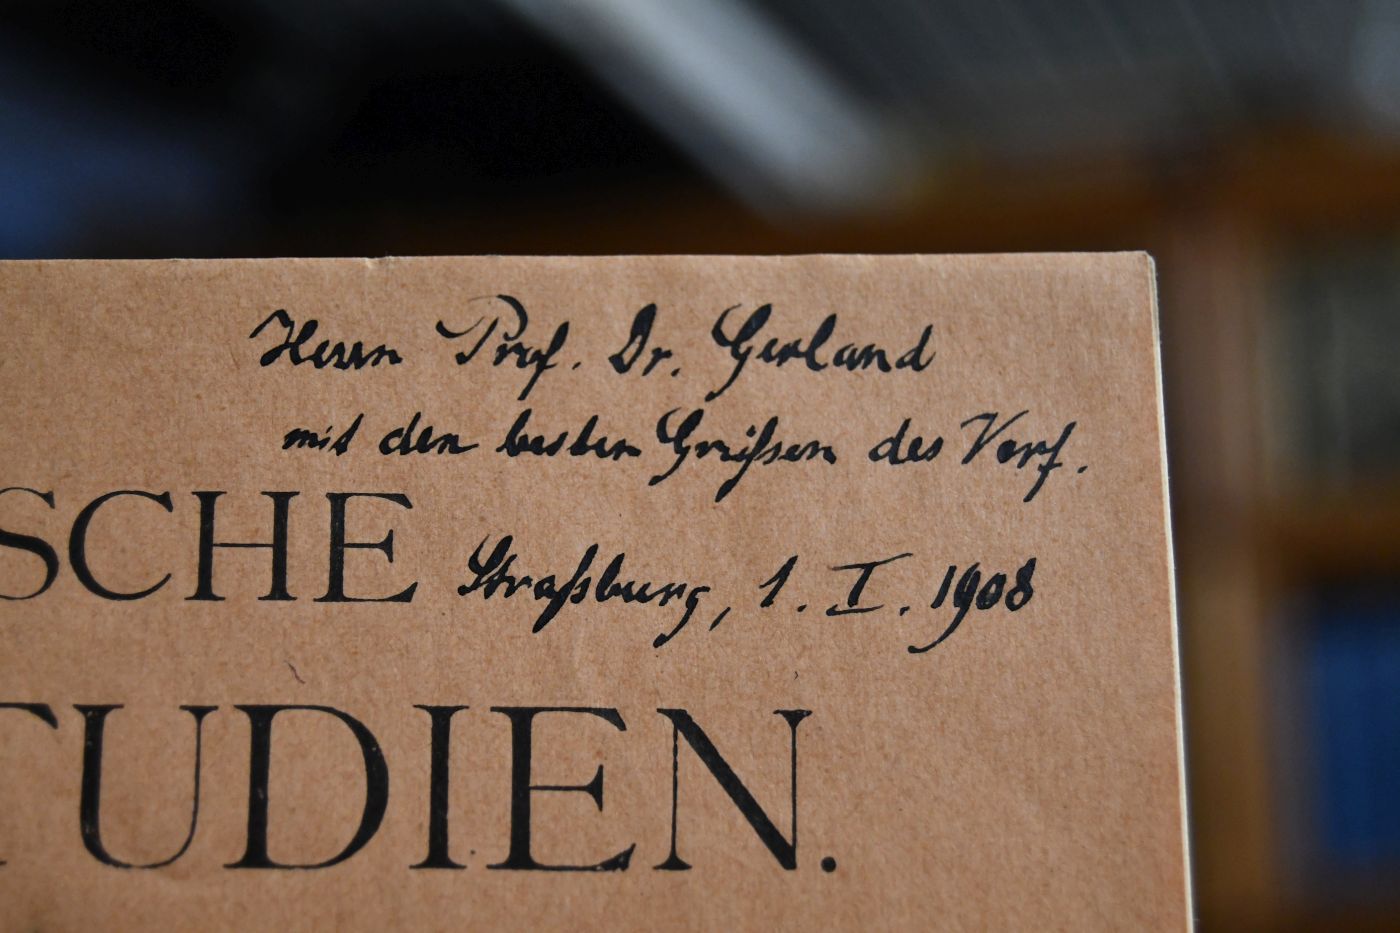 Herrn Prof. Dr. Gerland
mit den besten Grüßen des Verf.
SCHE Straßburg, 1. I. 1908
TUDIEN.